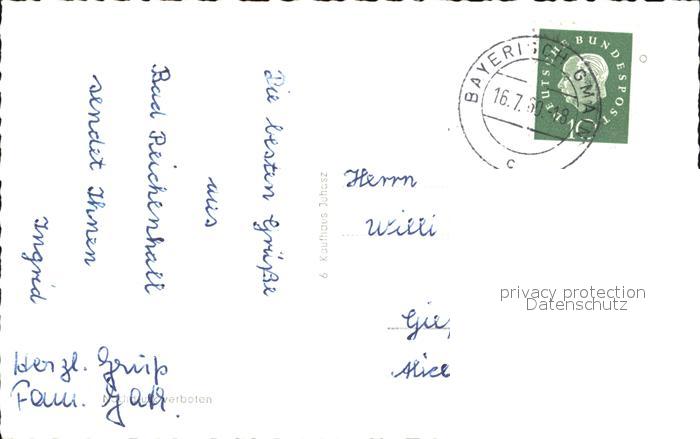 Die besten Grüße
aus
Bad Reichenhall
sendet Ihnen
Ingrid
Herzl. Gruß
Fam.
Nachdruck verboten
6 Kaufhaus Juhasz
BAYERISCH GMAIN
16.7.60-18
c
DEUTSCHE BUNDESPOST
10
Herrn
Willi
Gie
Alice
privacy protection
Datenschutz